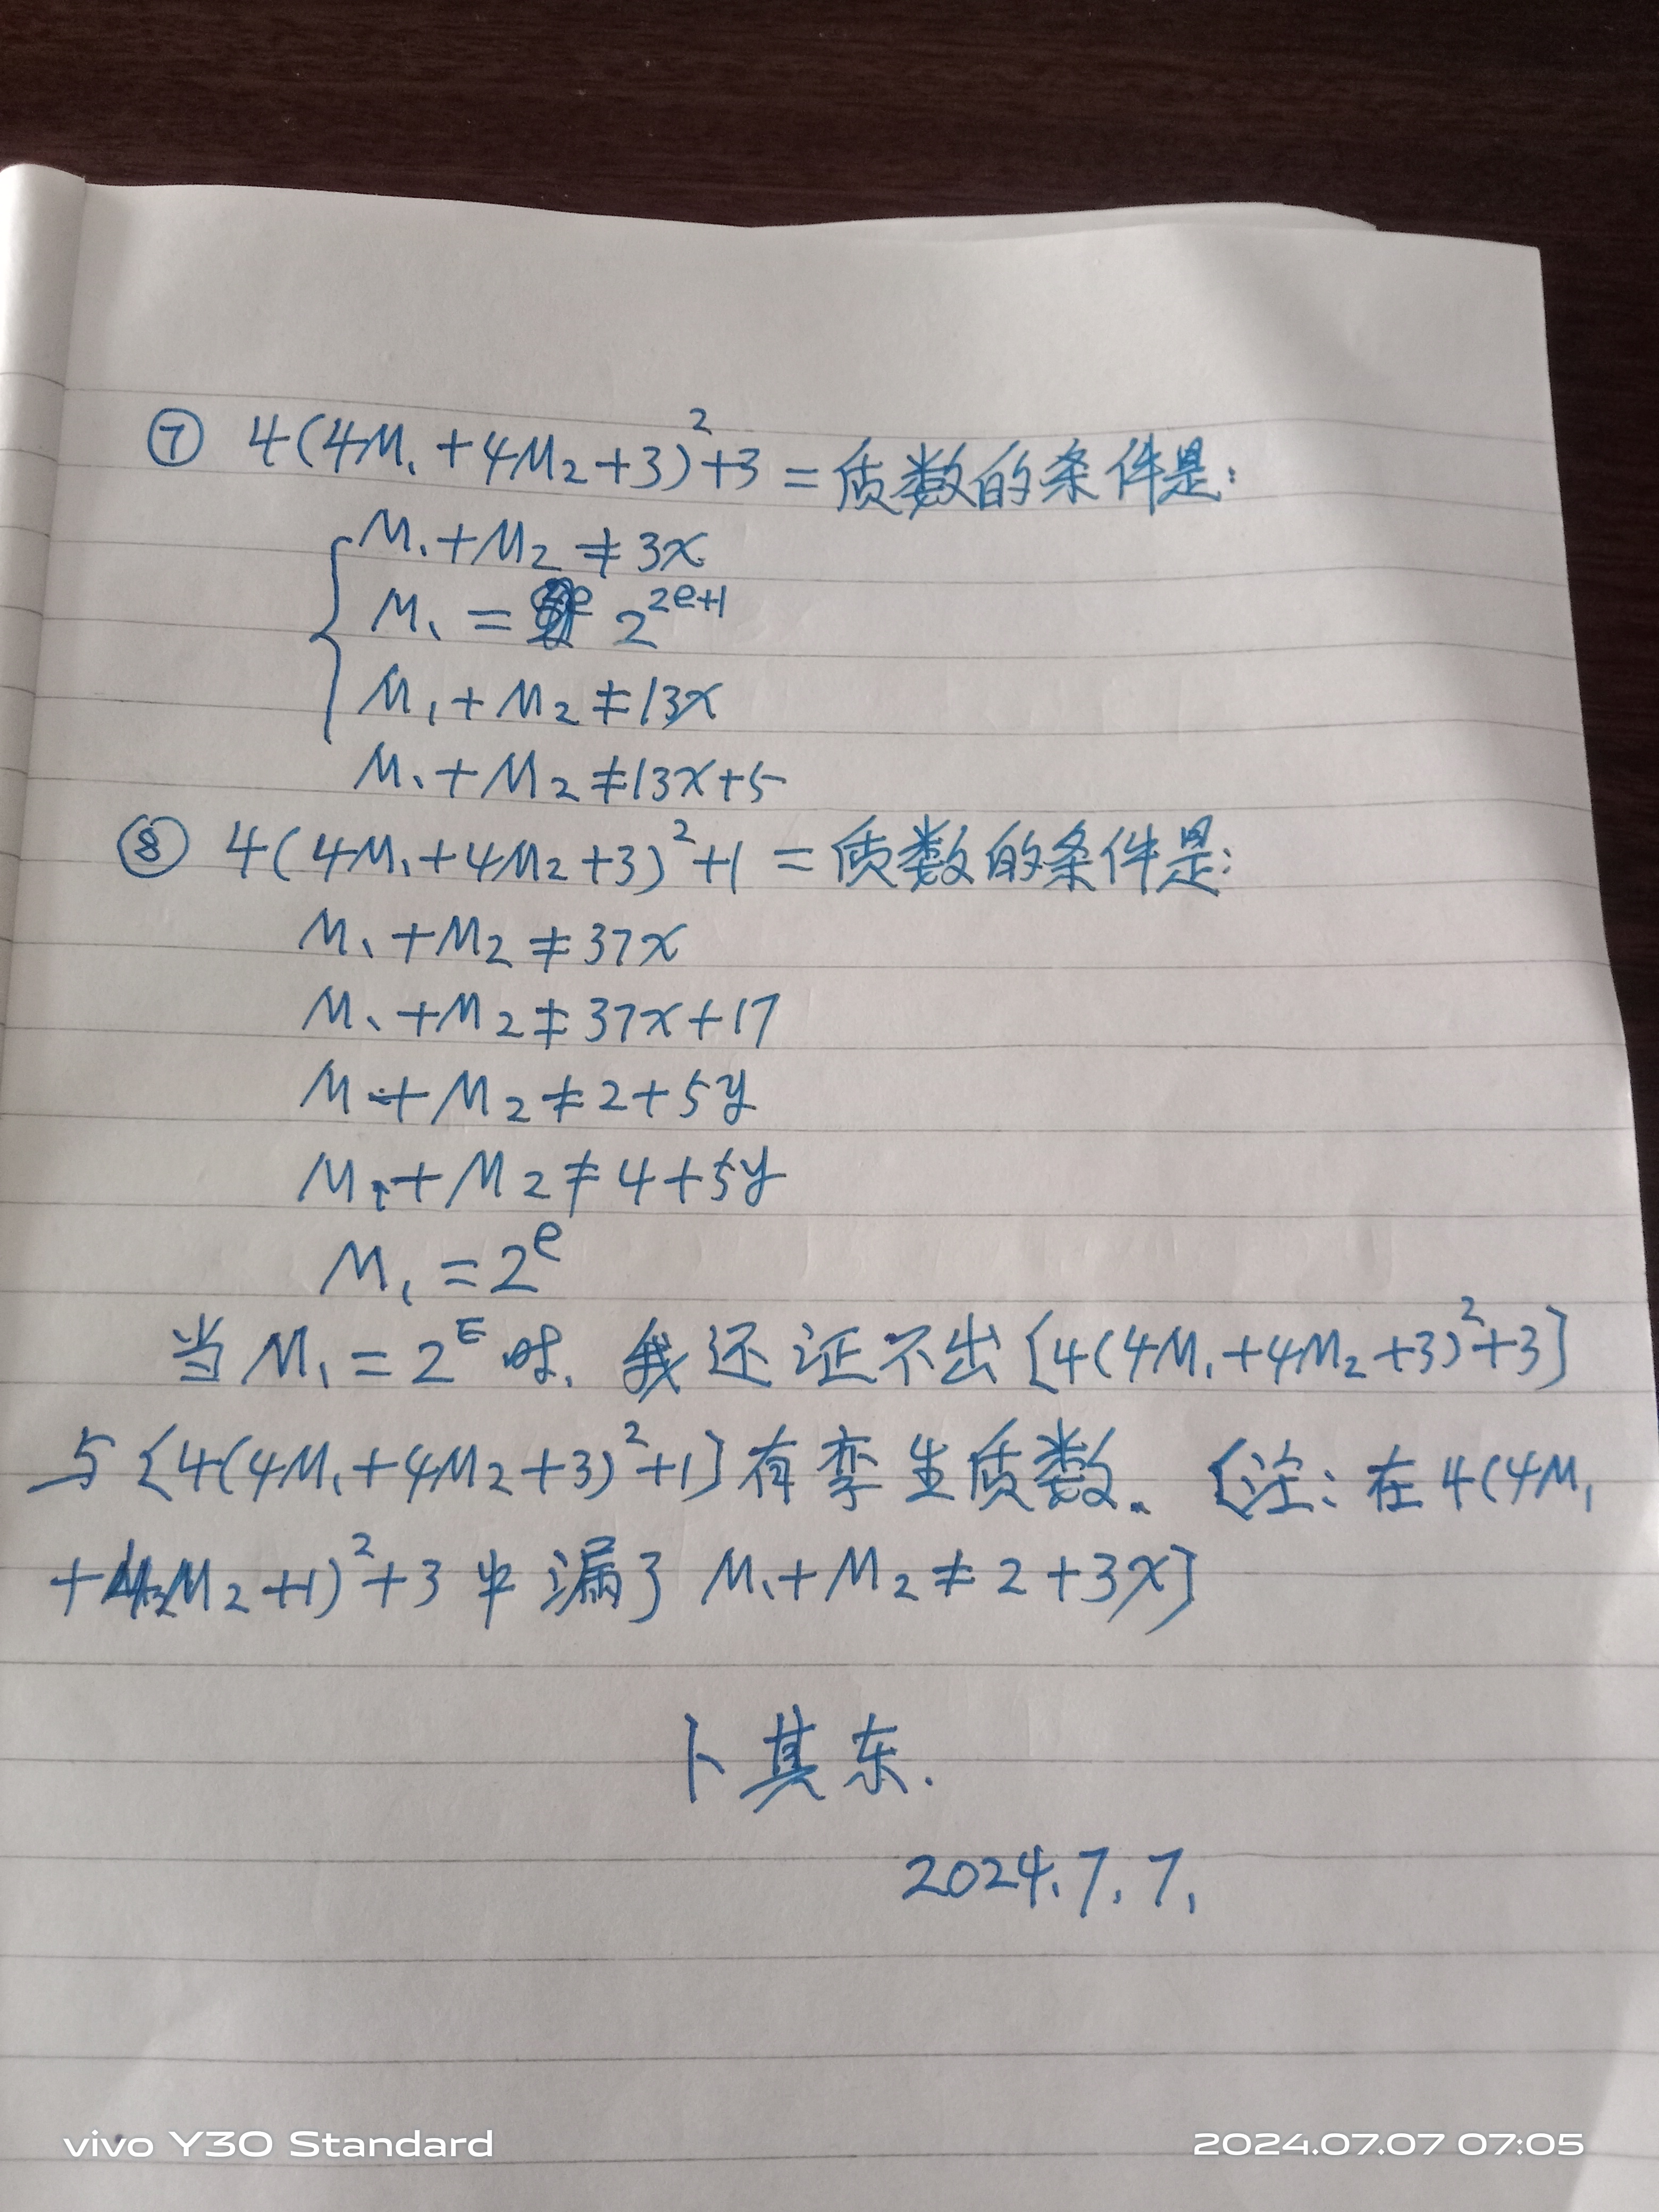 ⑦ 4(4M₁+4M₂+3)²+3=质数的条件是:
M₁+M₂≠3x
M₁= 2²ᵉ⁺¹
M₁+M₂≠13x
M₁+M₂≠13x+5
⑧ 4(4M₁+4M₂+3)²+1=质数的条件是:
M₁+M₂≠37x
M₁+M₂≠37x+17
M₁+M₂≠2+5y
M₁+M₂≠4+5y
M₁=2ᵉ
当M₁=2ᴱ时.我还证不出[4(4M₁+4M₂+3)²+3]
与[4(4M₁+4M₂+3)²+1]有孪生质数.[注:在4(4M₁
+4M₂+1)²+3中漏了 M₁+M₂≠2+3x]
卜其东.
2024.7.7.
vivo Y30 Standard
2024.07.07 07:05